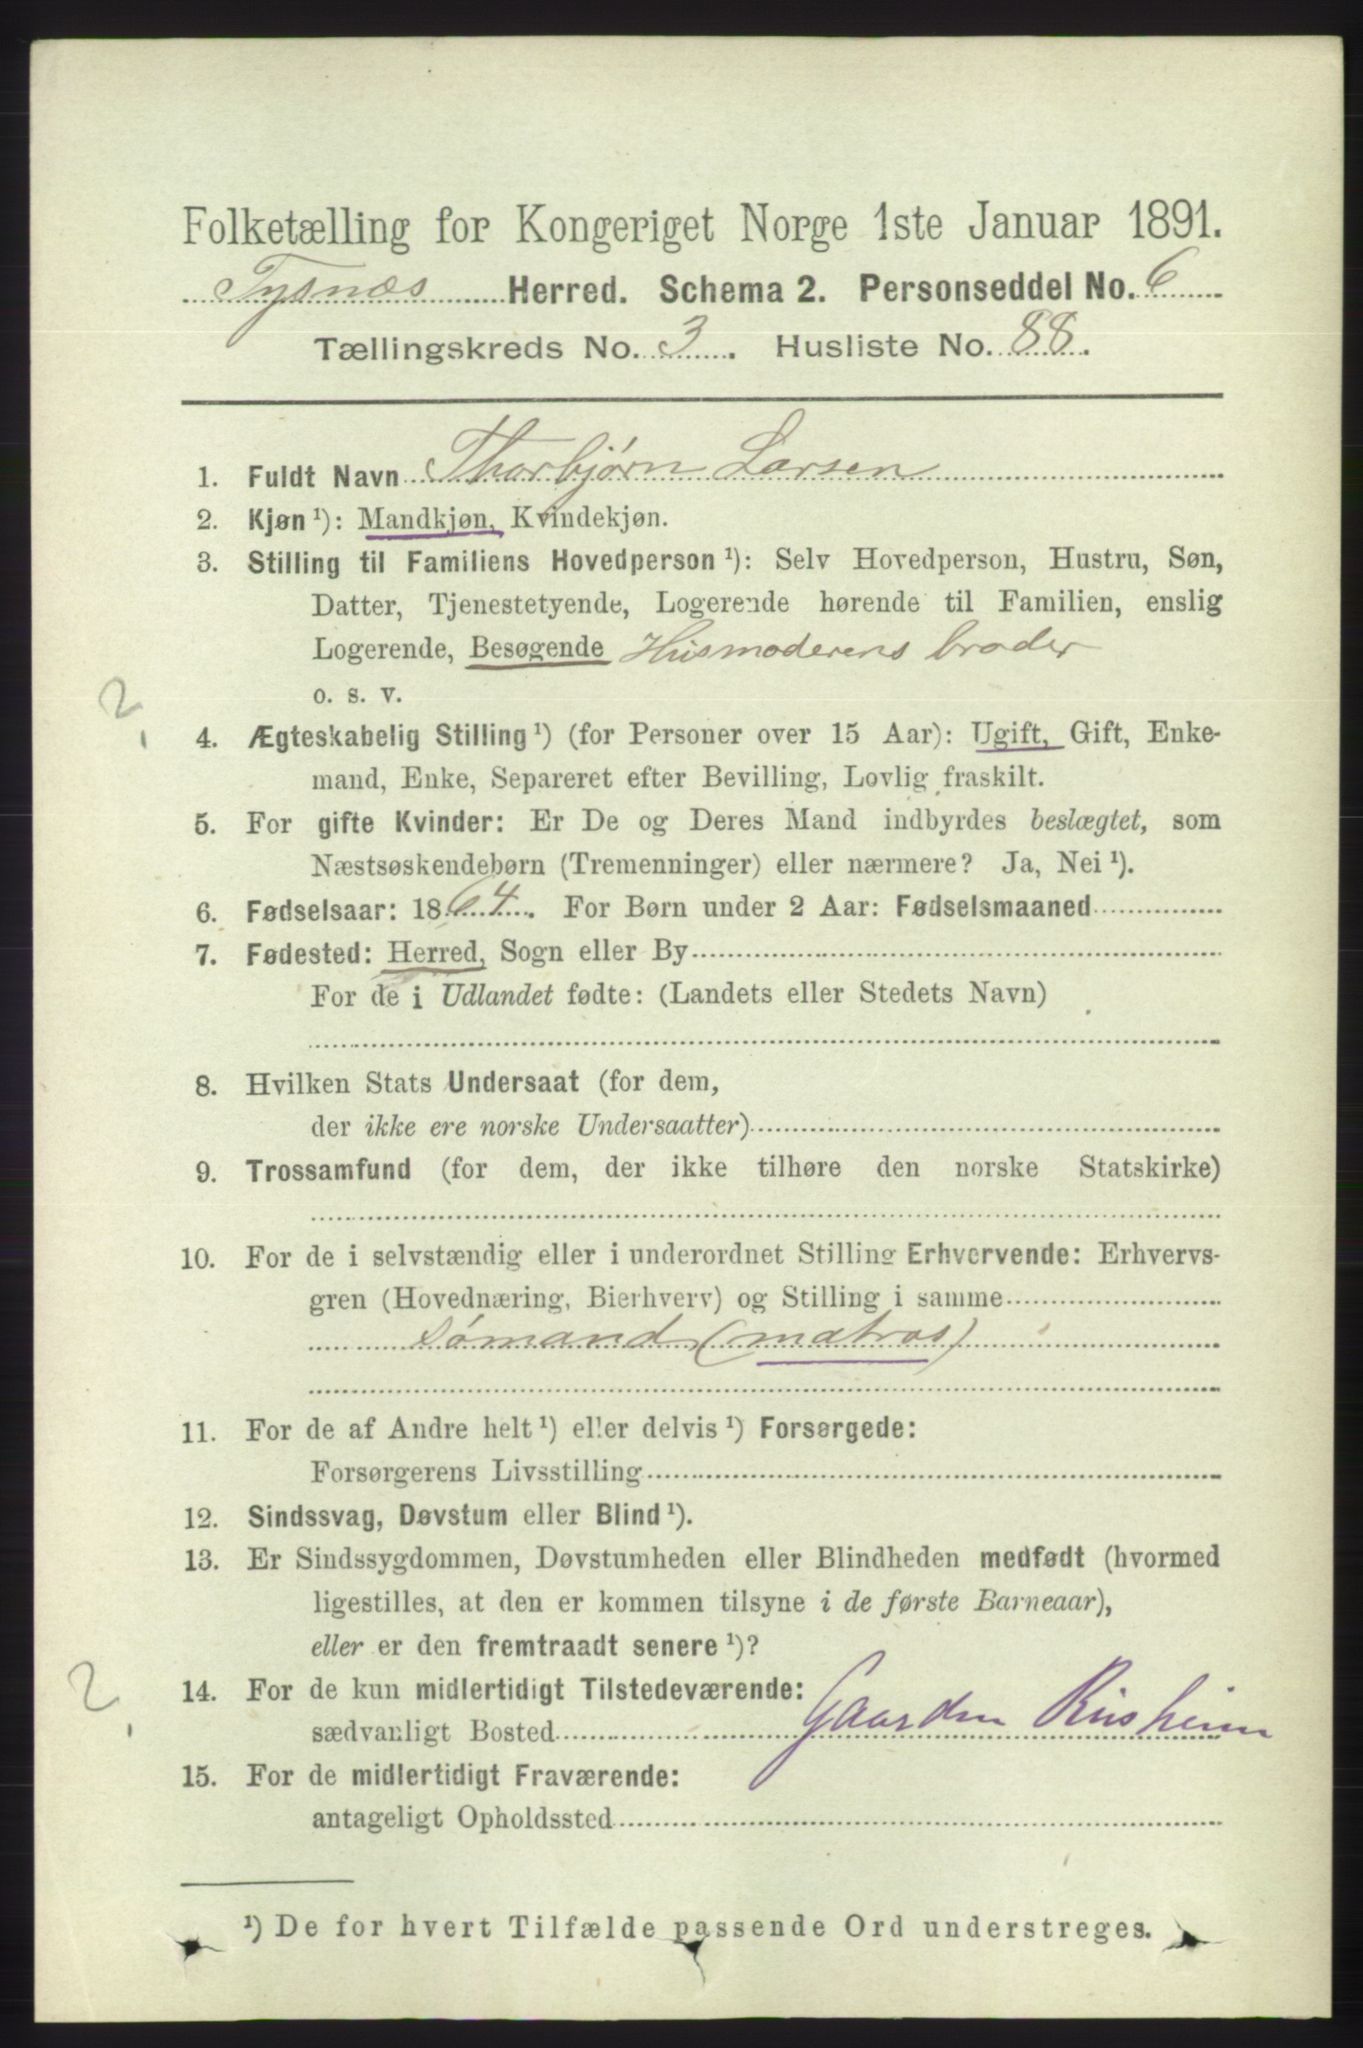 Folketælling for Kongeriget Norge 1ste Januar 1891.
Tysnæs Herred. Schema 2. Personseddel No. 6
Tællingskreds No. 3. Husliste No. 88.
1. Fuldt Navn Thorbjørn Larsen
2. Kjøn ¹): Mandkjøn, Kvindekjøn.
3. Stilling til Familiens Hovedperson ¹): Selv Hovedperson, Hustru, Søn,
Datter, Tjenestetyende, Logerende hørende til Familien, enslig
Logerende, Besøgende Husmoderens broder
o. s. v.
2.
4. Ægteskabelig Stilling ¹) (for Personer over 15 Aar): Ugift, Gift, Enke-
mand, Enke, Separeret efter Bevilling, Lovlig fraskilt.
5. For gifte Kvinder: Er De og Deres Mand indbyrdes beslægtet, som
Næstsøskendebørn (Tremenninger) eller nærmere? Ja, Nei ¹).
6. Fødselsaar: 1864. For Børn under 2 Aar: Fødselsmaaned
7. Fødested: Herred, Sogn eller By
For de i Udlandet fødte: (Landets eller Stedets Navn)
8. Hvilken Stats Undersaat (for dem,
der ikke ere norske Undersaatter)
9. Trossamfund (for dem, der ikke tilhøre den norske Statskirke)
10. For de i selvstændig eller i underordnet Stilling Erhvervende: Erhvervs-
gren (Hovednæring, Bierhverv) og Stilling i samme
Sømand (matros)
11. For de af Andre helt ¹) eller delvis ¹) Forsørgede:
Forsørgerens Livsstilling
12. Sindssvag, Døvstum eller Blind ¹).
13. Er Sindssygdommen, Døvstumheden eller Blindheden medfødt (hvormed
ligestilles, at den er kommen tilsyne i de første Barneaar),
eller er den fremtraadt senere ¹)?
2.
14. For de kun midlertidigt Tilstedeværende:
sædvanligt Bosted Gaarden
15. For de midlertidigt Fraværende:
antageligt Opholdssted
¹) De for hvert Tilfælde passende Ord understreges.